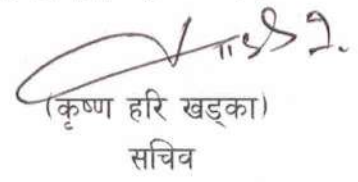 (कृष्ण हरि खड्का)
सचिव